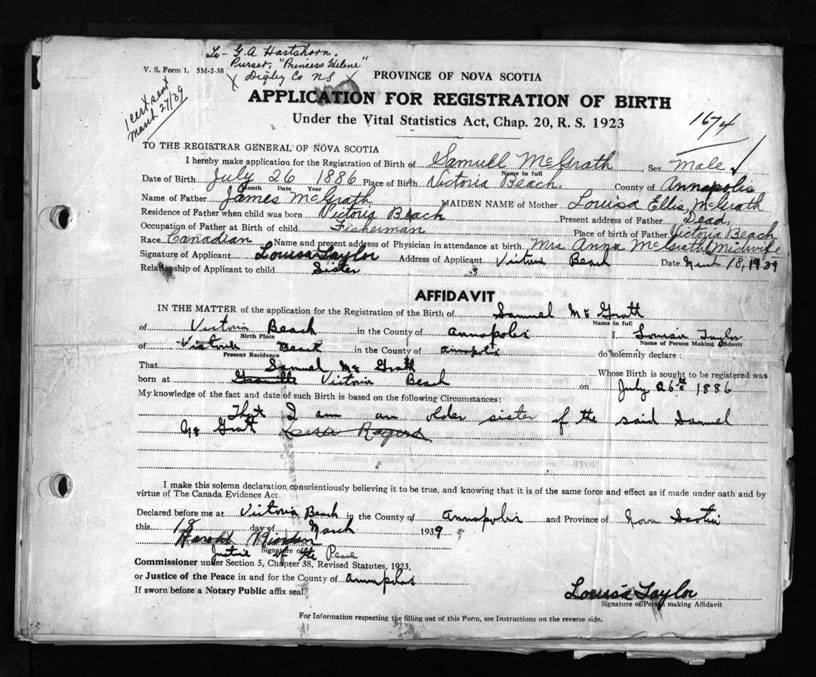 To - G.A. Hartshorn.
Purser, "Princess Helene"
X Digby Co NS X
V. S. Form 1. 5M-2-38
1 cert. sent
March 27/39
PROVINCE OF NOVA SCOTIA
APPLICATION FOR REGISTRATION OF BIRTH
Under the Vital Statistics Act, Chap. 20, R. S. 1923
1674
TO THE REGISTRAR GENERAL OF NOVA SCOTIA
I hereby make application for the Registration of Birth of Samuel McGrath Sex Male
Name in full
Date of Birth July 26 1886 Place of Birth Victoria Beach, County of Annapolis
Month Date Year
Name of Father James McGrath MAIDEN NAME of Mother Louisa Ellis, McGrath
Residence of Father when child was born Victoria Beach Present address of Father Dead,
Occupation of Father at Birth of child Fisherman Place of birth of Father Victoria Beach
Race Canadian Name and present address of Physician in attendance at birth Mrs Anna McGrath Midwife
Signature of Applicant Louisa Taylor Address of Applicant Victoria Beach Date 18, 1939
Relationship of Applicant to child Sister
AFFIDAVIT
IN THE MATTER of the application for the Registration of the Birth of Samuel Mc Gratt
Name in full
of Victoria Beach in the County of Annapolis I, Taylor
Birth Place Name of Person Making Affidavit
of Victoria Beach in the County of annapolis do solemnly declare :
Present Residence
That Samuel Mc Gratt Whose Birth is sought to be registered was
born at Granville Victoria Beach on July 26th 1886
My knowledge of the fact and date of such Birth is based on the following Circumstances:
That I am an older sister of the said Samuel
Mc Gratt Rogers
I make this solemn declaration conscientiously believing it to be true, and knowing that it is of the same force and effect as if made under oath and by
virtue of The Canada Evidence Act.
Declared before me at Victoria Beach in the County of Annapolis and Province of Nova Scotia
this 18 day of March 1939
Harold Riordan
Signature of
Justice of the Peace
Commissioner under Section 5, Chapter 38, Revised Statutes, 1923,
or Justice of the Peace in and for the County of annapolis
If sworn before a Notary Public affix seal.
Louisa Taylor
Signature of Person making Affidavit
For Information respecting the filling out of this Form, see Instructions on the reverse side.